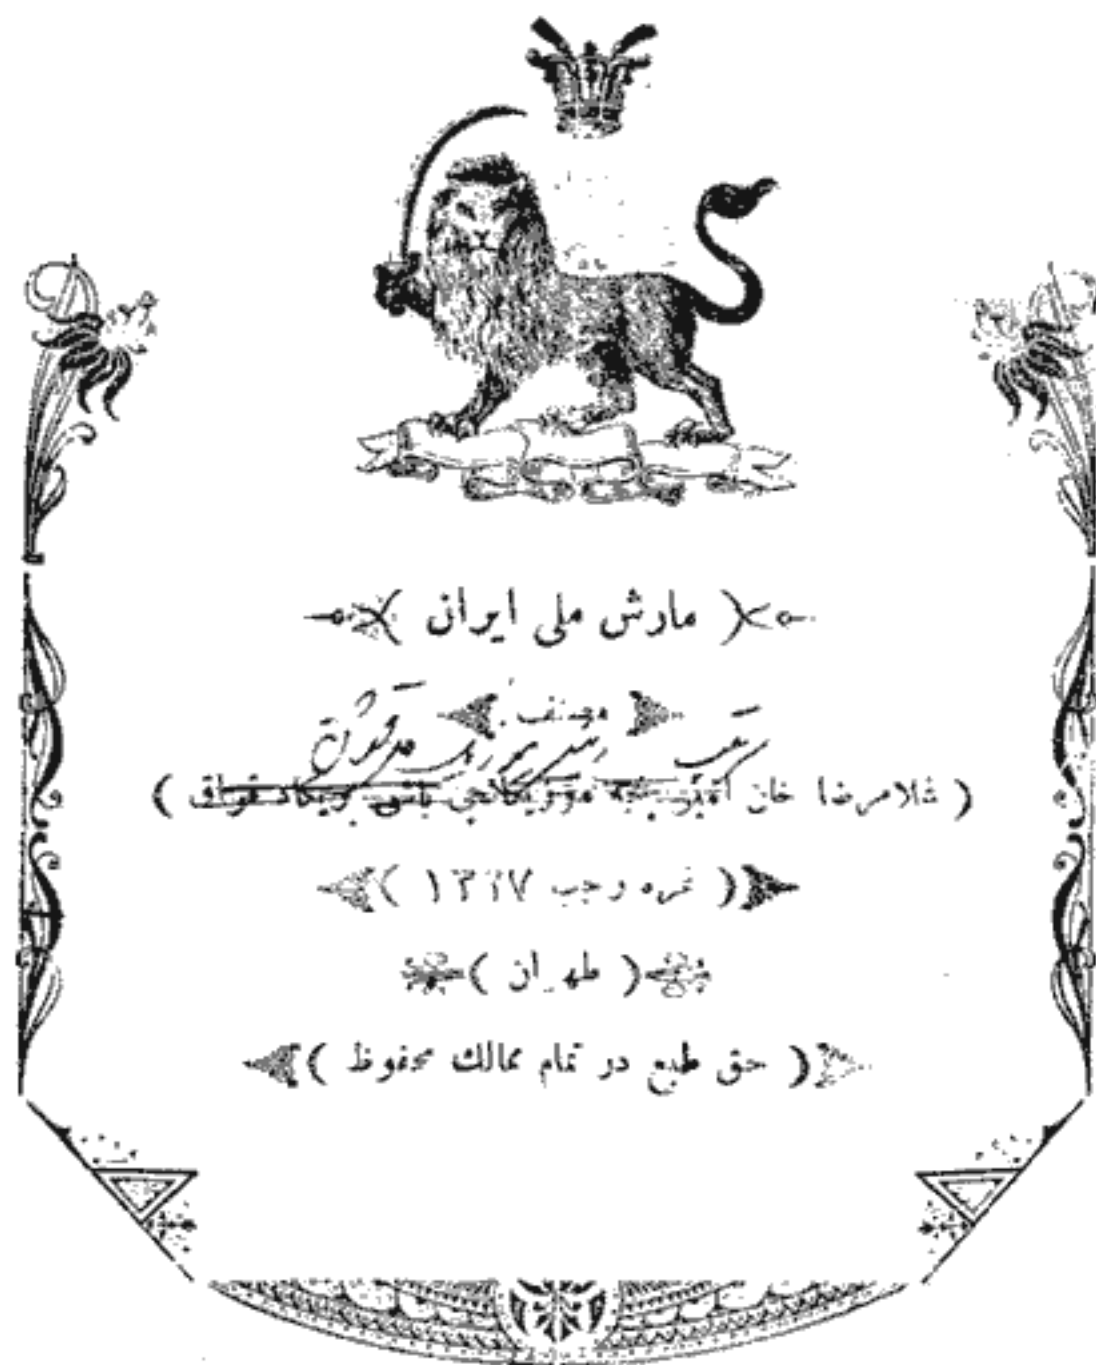 ( مارش ملی ایران )
مصنف
( غلامرضا خان امیر پنجه موزیکانچی باشی بریکاد قزاق )
( غره رجب ۱۳۲۷ )
( طهران )
( حق طبع در تمام ممالک محفوظ )